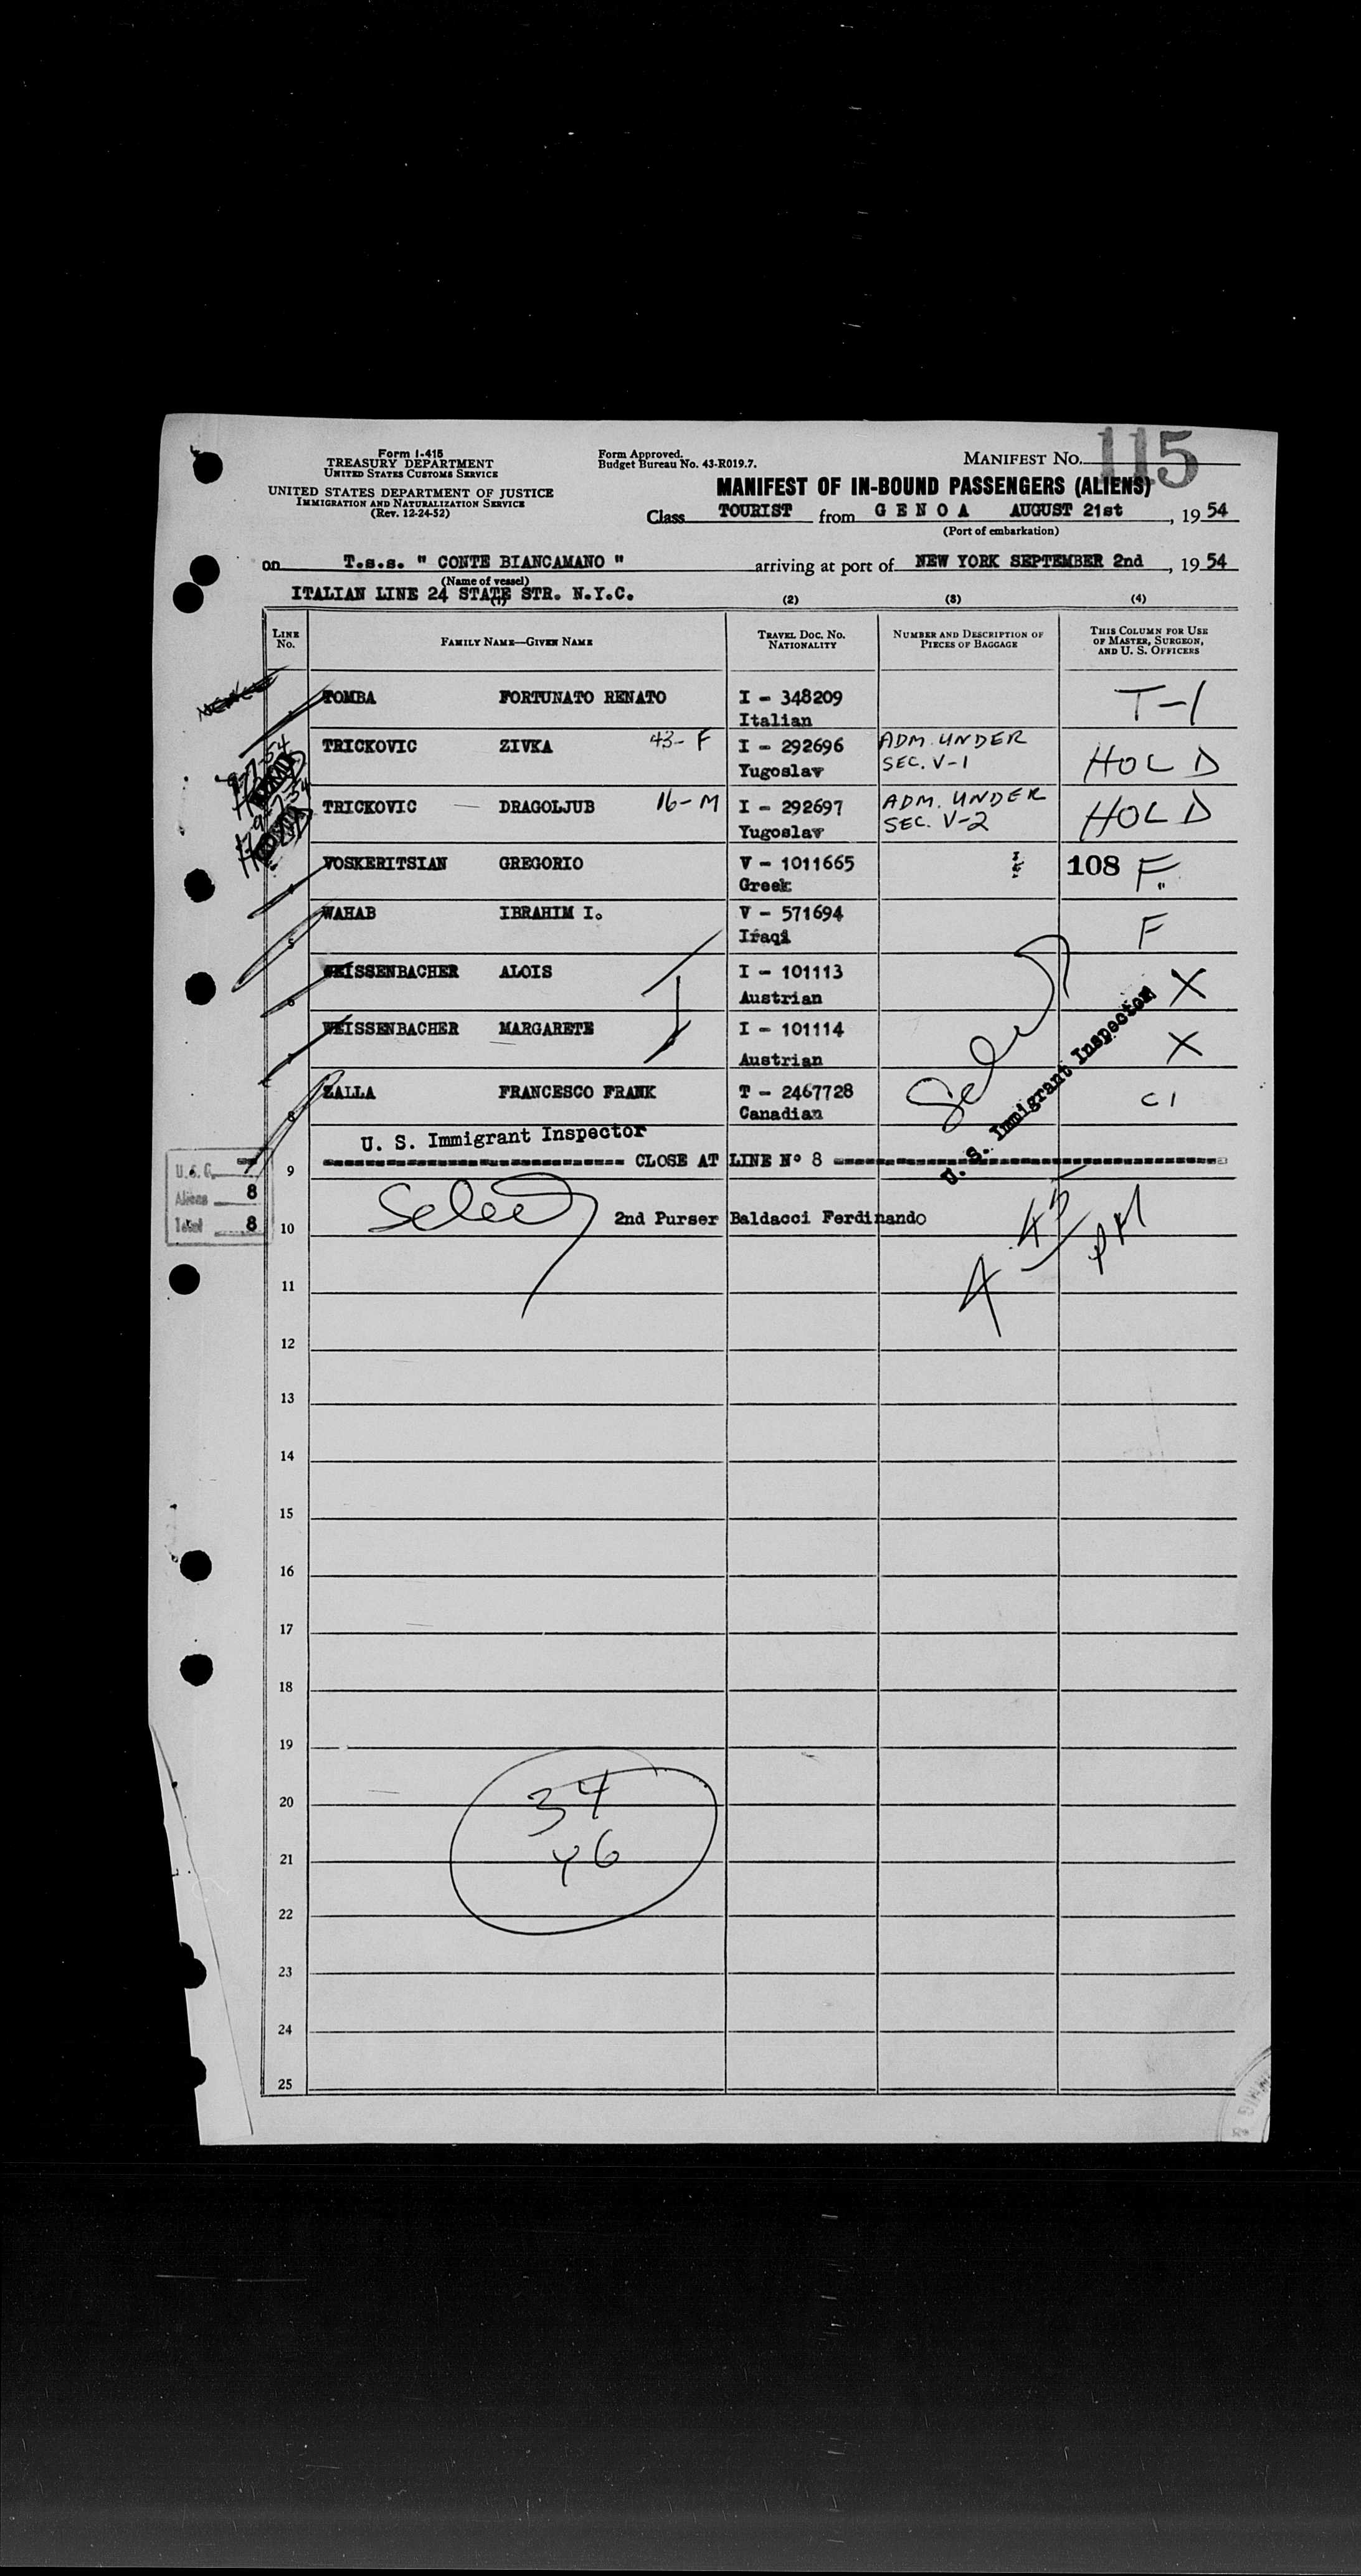 Form I-415
TREASURY DEPARTMENT
UNITED STATES CUSTOMS SERVICE
UNITED STATES DEPARTMENT OF JUSTICE
IMMIGRATION AND NATURALIZATION SERVICE
(Rev. 12-24-52)
Form Approved.
Budget Bureau No. 43-R019.7.
MANIFEST NO. 115
MANIFEST OF IN-BOUND PASSENGERS (ALIENS)
Class TOURIST from G E N O A AUGUST 21st, 19 54
(Port of embarkation)
on T.s.s. " CONTE BIANCAMANO " arriving at port of NEW YORK SEPTEMBER 2nd, 19 54
(Name of vessel)
ITALIAN LINE 24 STATE STR. N.Y.C.
(1) (2) (3) (4)
LINE NO. FAMILY NAME—GIVEN NAME TRAVEL DOC. NO. NATIONALITY NUMBER AND DESCRIPTION OF PIECES OF BAGGAGE THIS COLUMN FOR USE OF MASTER, SURGEON, AND U. S. OFFICERS
TOMBA FORTUNATO RENATO I - 348209 T-1
Italian
TRICKOVIC ZIVKA 43-F I - 292696 ADM. UNDER HOLD
Yugoslav SEC. V-1
TRICKOVIC DRAGOLJUB 16-M I - 292697 ADM. UNDER HOLD
Yugoslav SEC. V-2
4 VOSKERITSIAN GREGORIO V - 1011665 108 F
Greek
5 WAHAB IBRAHIM I. V - 571694 F
Iraqi
6 WEISSENBACHER ALOIS I - 101113 X
Austrian
7 WEISSENBACHER MARGARETE I - 101114 X
Austrian
8 ZALLA FRANCESCO FRANK T - 2467728 C1
Canadian
U. S. Immigrant Inspector
U. S. Immigrant Inspector
9 CLOSE AT LINE Nº 8
U.S.C.
Aliens 8
Total 8
10 2nd Purser Baldacci Ferdinando
11
12
13
14
15
16
17
18
19
20
21
22
23
24
25
34